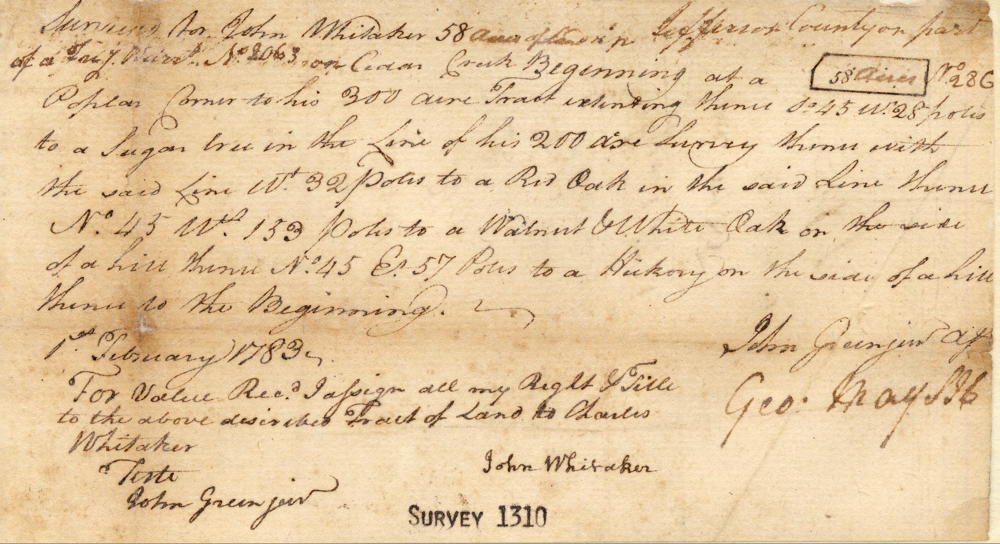 Surveyed for John Whitaker 58 acres of land in Jefferson County on part
of a Trẏ. Warrt. No. 2063 on Cedar Creek Beginning at a
58 acres No. 286
Poplar Corner to his 300 acre Tract extending thence So 45 Wt. 28 poles
to a Sugar tree in the Line of his 200 acre Survey thence with
the said Line Wt. 32 Poles to a Red Oak in the said Line thence
No. 45 Wt. 153 poles to a Walnut & White Oak on the side
of a hill thence No. 45 Et. 57 Poles to a Hickory on the side of a hill
thence to the Beginning.
1st February 1783
John Greenjew
Geo: May
For Value Recd. I assign all my Right & Title
to the above discribed Tract of Land to Charles
Whitaker
Teste
John Whitaker
John Greenjew
SURVEY 1310